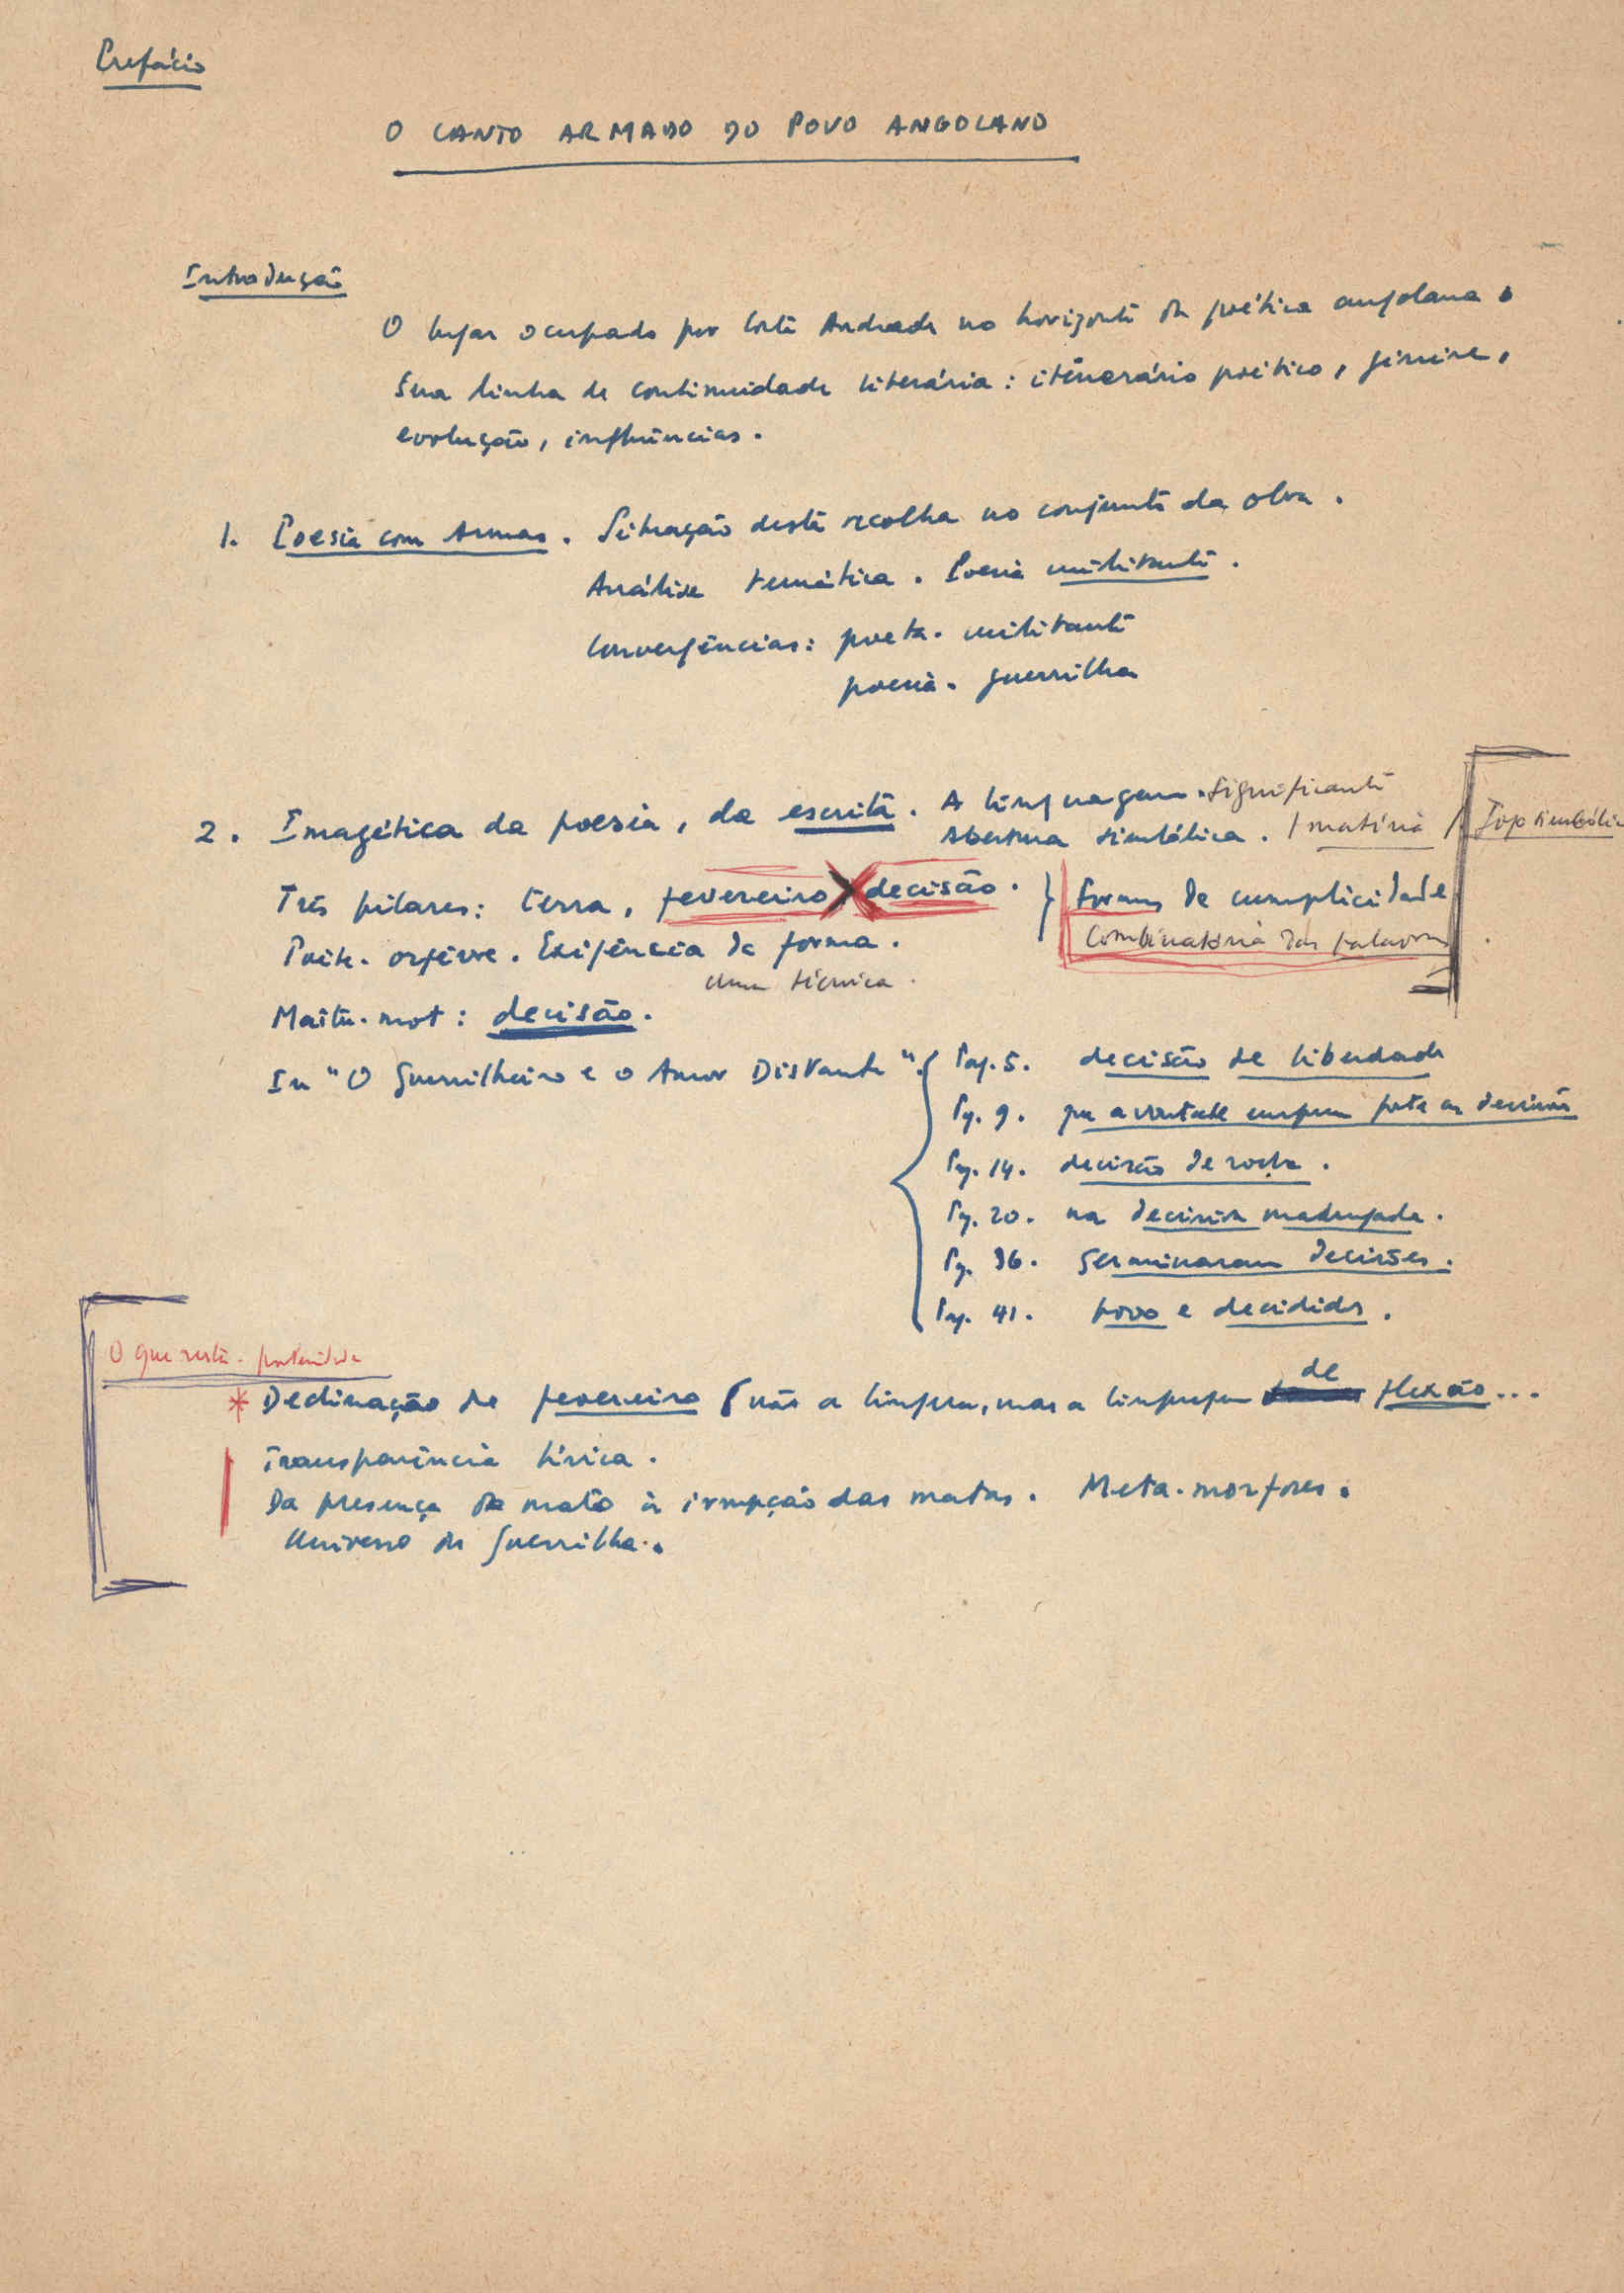 Prefácio
O CANTO ARMADO DO POVO ANGOLANO
Introdução
O lugar ocupado por Costa Andrade no horizonte da poética angolana.
Sua linha de continuidade literária: itinerário poético, génese,
evolução, influências.
1. Poesia com Armas. Situação desta recolha no conjunto da obra.
Análise temática. Poesia militante.
Convergências: poeta-militante
poesia-guerrilha
2. Imagética da poesia, da escrita. A linguagem. significante
Abertura simbólica. / matéria / Jogo simbólico
Três pilares: terra, fevereiro, decisão. } formas de cumplicidade
Poète-orfèvre. Exigência da forma. Combinatória das palavras
uma técnica.
Maître-mot: decisão.
In "O Guerrilheiro e o Amor Distante".
Pag. 5. decisão de liberdade
Pg. 9. que a vontade
Pg. 14. decisão de rocha.
Pg. 20. na decisiva madrugada.
Pg. 36. germinaram decisões.
Pag. 41. povo e decidida.
O que resta
* Declinação de fevereiro (não a língua, mas a linguagem de flexão...
Transparência lírica.
Da presença da mato à irrupção das matas. Meta-morfoses.
Universo da Guerrilha.